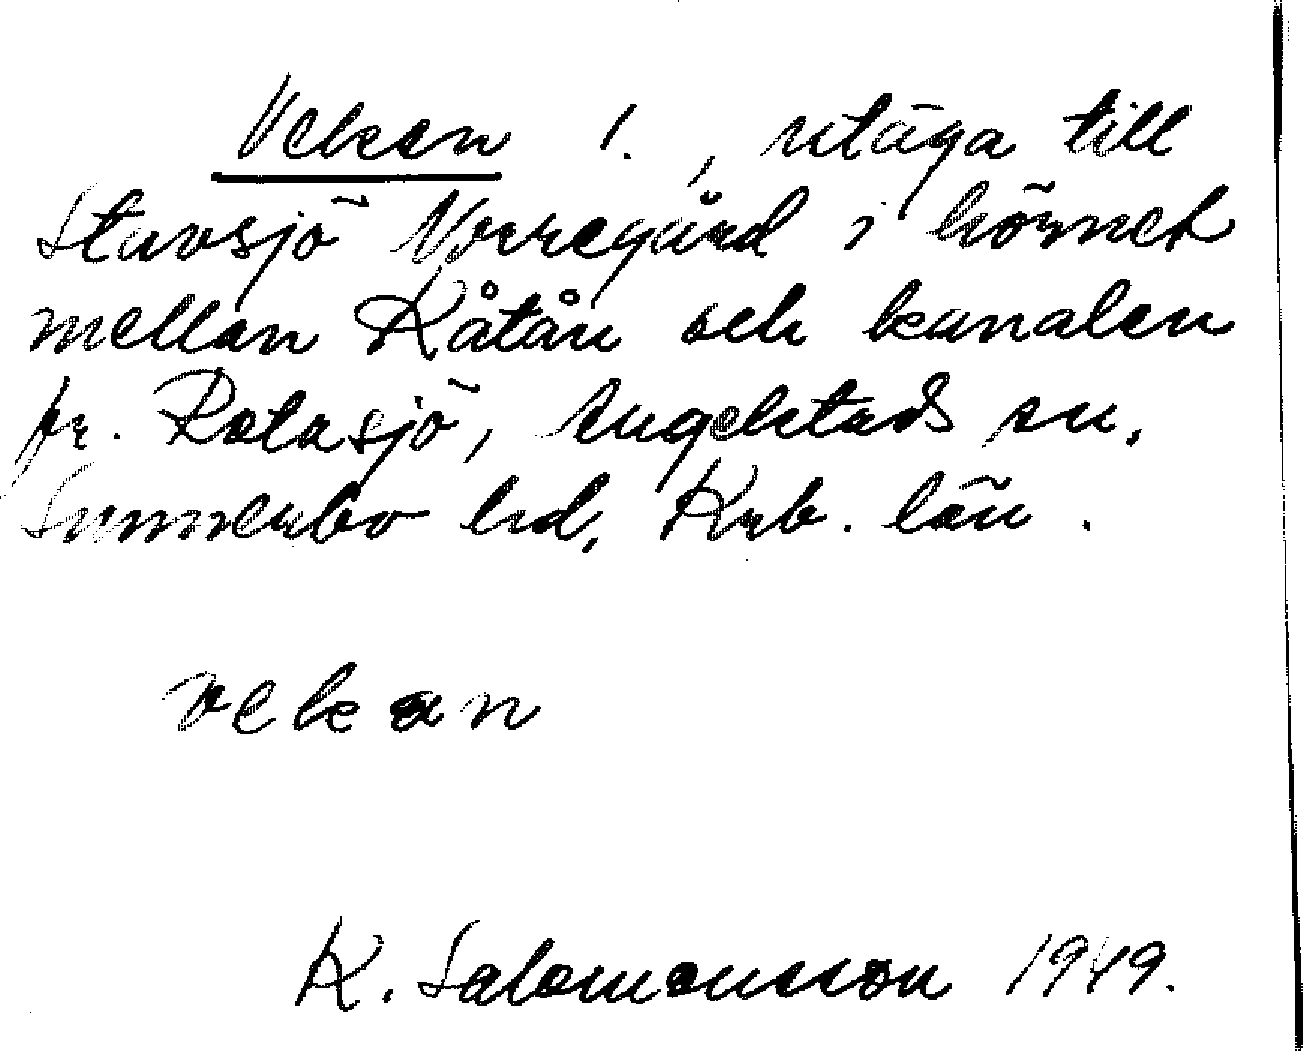 Vekan 1., utäga till
Stavsjö Norregård i hörnet
mellan Kåtån och kanalen
fr. Rotasjö, Angelstads sn.
Sunnerbo hd, Krb. län.
vekan
K. Salomonsson 1949.